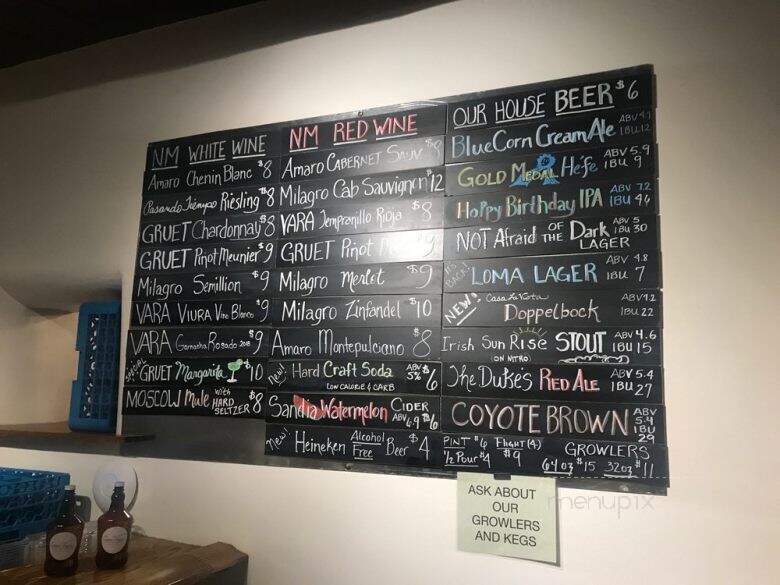 NM WHITE WINE
Amaro Chenin Blanc $8
Pasando Tiempo Riesling $8
GRUET Chardonnay $8
GRUET Pinot Meunier $9
Milagro Semillion $9
VARA VIURA Vino Blanco $9
VARA Garnacha Rosado 2018 $9
SPECIAL GRUET Margarita $10
MOSCOW Mule with HARD SELTZER $8
NM RED WINE
Amaro CABERNET
Milagro Cab Sauvignon $12
VARA Tempranillo Rioja $8
GRUET Pinot
Milagro Merlot $9
Milagro Zinfandel $10
Amaro Montepulciano $8
New! Hard Craft Soda ABV 5% $6
LOW CALORIE & CARB
Sandia Watermelon CIDER
ABV 6.9 $6
New! Heineken Alcohol Free Beer $4
OUR HOUSE BEER $6
Blue Corn Cream Ale ABV IBU 12
GOLD MEDAL Hefe ABV 5.9 IBU 9
Hoppy Birthday IPA ABV 7.2 IBU
NOT Afraid OF THE Dark LAGER ABV 5 IBU 30
LOMA LAGER ABV 4.8 IBU 7
NEW! Casa La Kota
Doppelbock IBU 22
Irish Sun Rise STOUT ABV 4.6 IBU 15
(ON NITRO)
The Duke's RED ALE ABV 5.4 IBU 27
COYOTE BROWN ABV 5.4 IBU 29
PINT $6 FLIGHT (4) $9
1/2 Pour $4
GROWLERS
64 oz $15 32 oz $11
ASK ABOUT
OUR
GROWLERS
AND KEGS
menupix